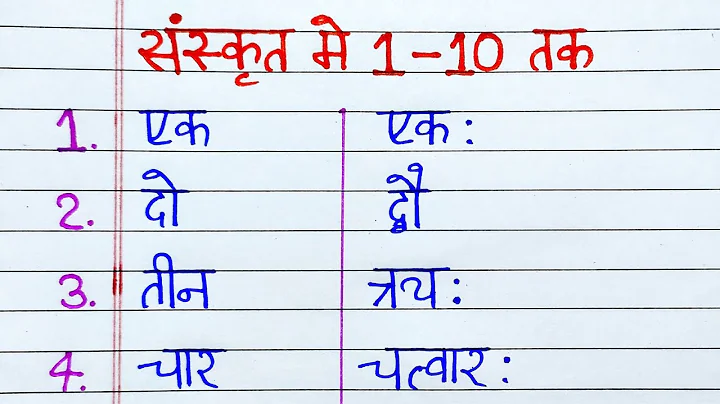 संस्कृत मे 1-10 तक
1. एक एक:
2. दो द्वौ
3. तीन त्रय:
4. चार चत्वार: